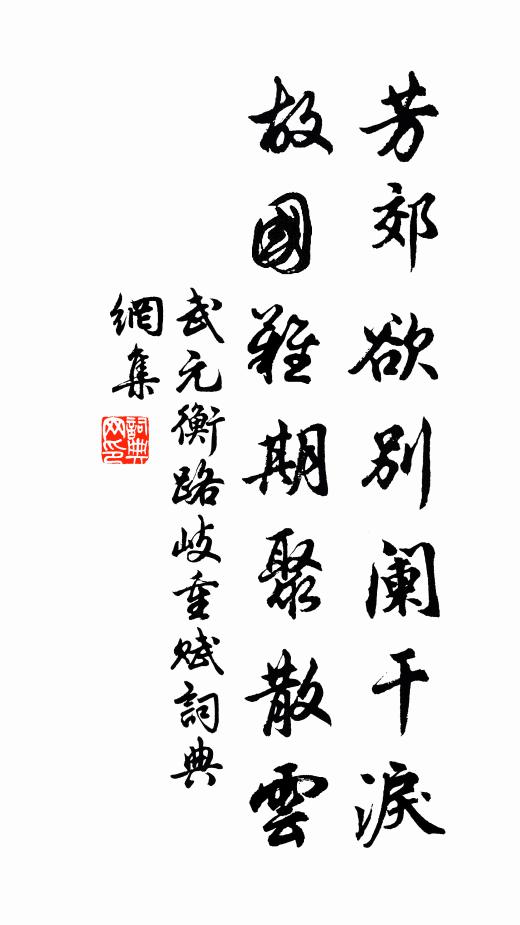 芳郊欲別阑干淚
故國難期聚散雲
武元衡路岐重赋詞典
網集
詞典網印